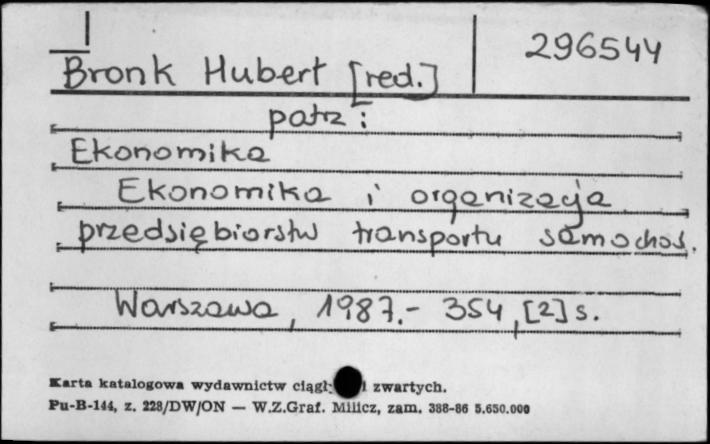 296544
Bronk Hubert [red.]
patrz:
Ekonomika
Ekonomika i organizacja
przedsiębiorstw transportu samochod.
Warszawa, 1987.- 354, [2] s.
Karta katalogowa wydawnictw i zwartych.
Pu-B-144, z. 228/DW/ON — W.Z.Graf. Milicz, zam. 388-86 5.650.000